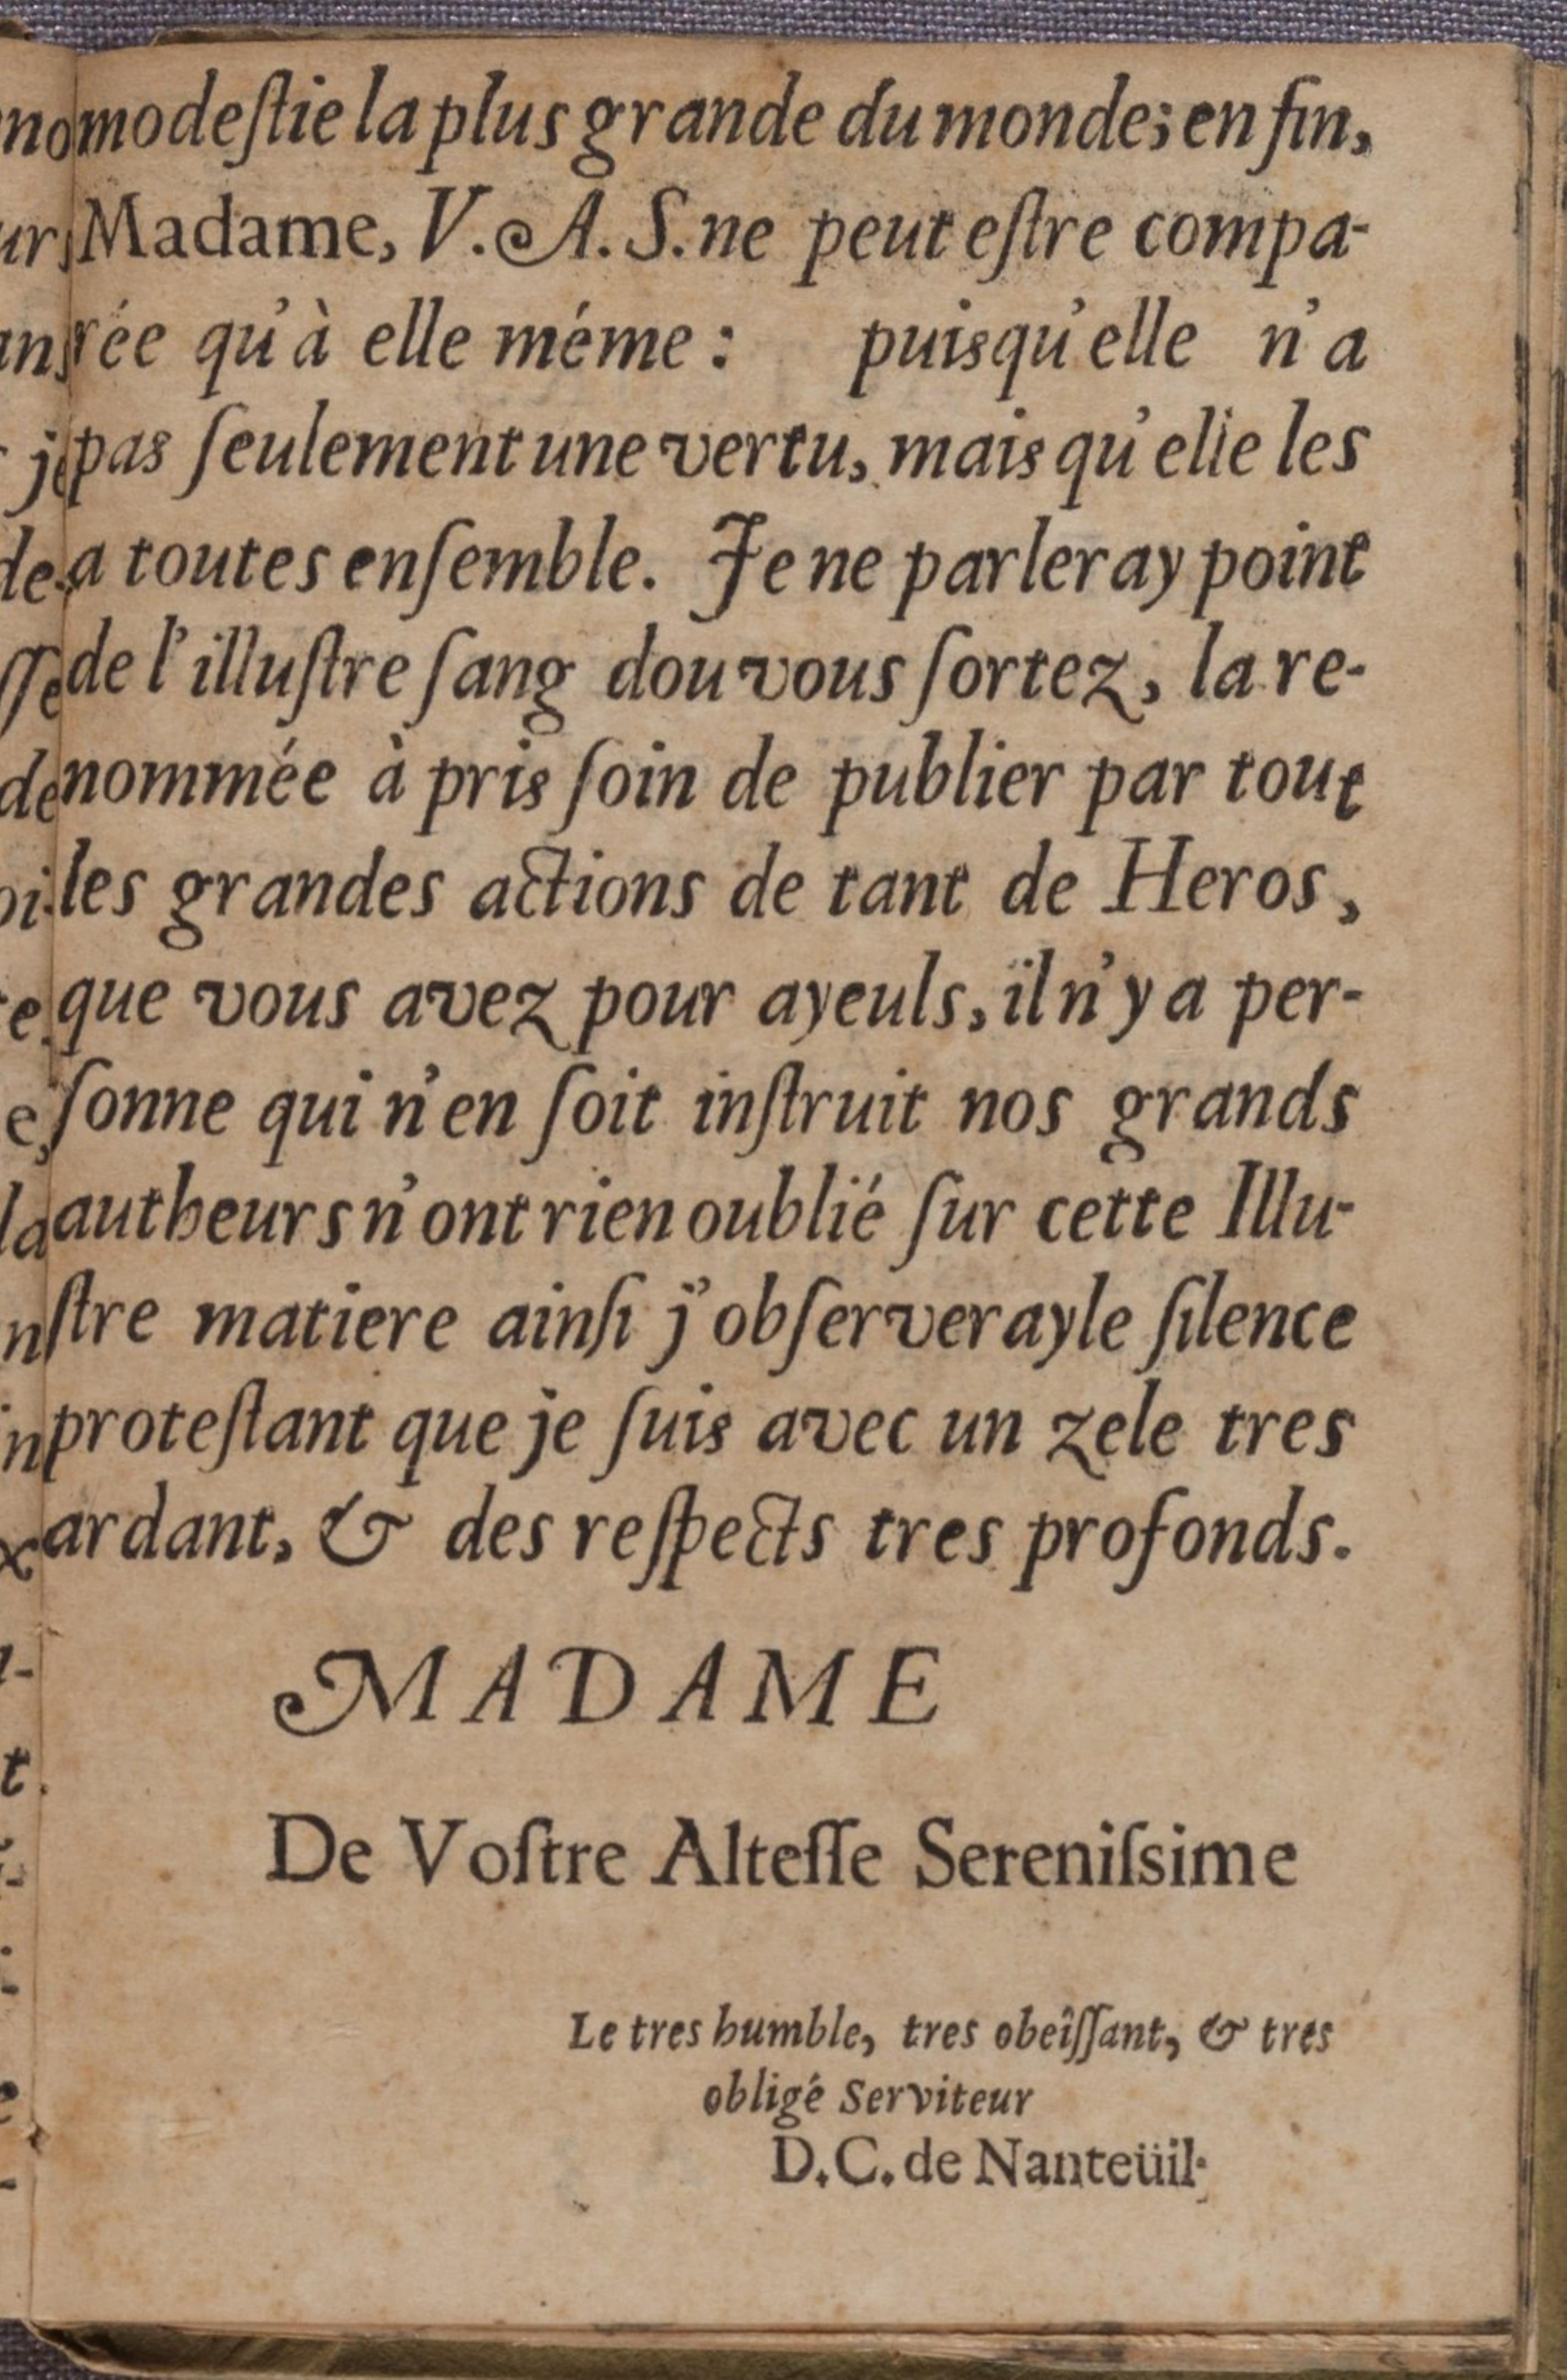 modeſtie la plus grande du monde; en fin,
Madame, V. A. S. ne peut eſtre compa-
rée qu'à elle méme : puisqu'elle n'a
pas ſeulement une vertu, mais qu'elle les
a toutes enſemble. Je ne parleray point
de l'illuſtre ſang dou vous ſortez, la re-
nommée à pris ſoin de publier par tout
les grandes actions de tant de Heros,
que vous avez pour ayeuls, il n'y a per-
ſonne qui n'en ſoit inſtruit nos grands
autheurs n'ont rien oublié ſur cette Illu-
ſtre matiere ainſi j'obſerverayle ſilence
proteſtant que je ſuis avec un zele tres
ardant, & des reſpects tres profonds.
MADAME
De Voſtre Alteſſe Sereniſsime
Le tres humble, tres obeîſſant, & tres
obligé Serviteur
D. C. de Nanteüil.